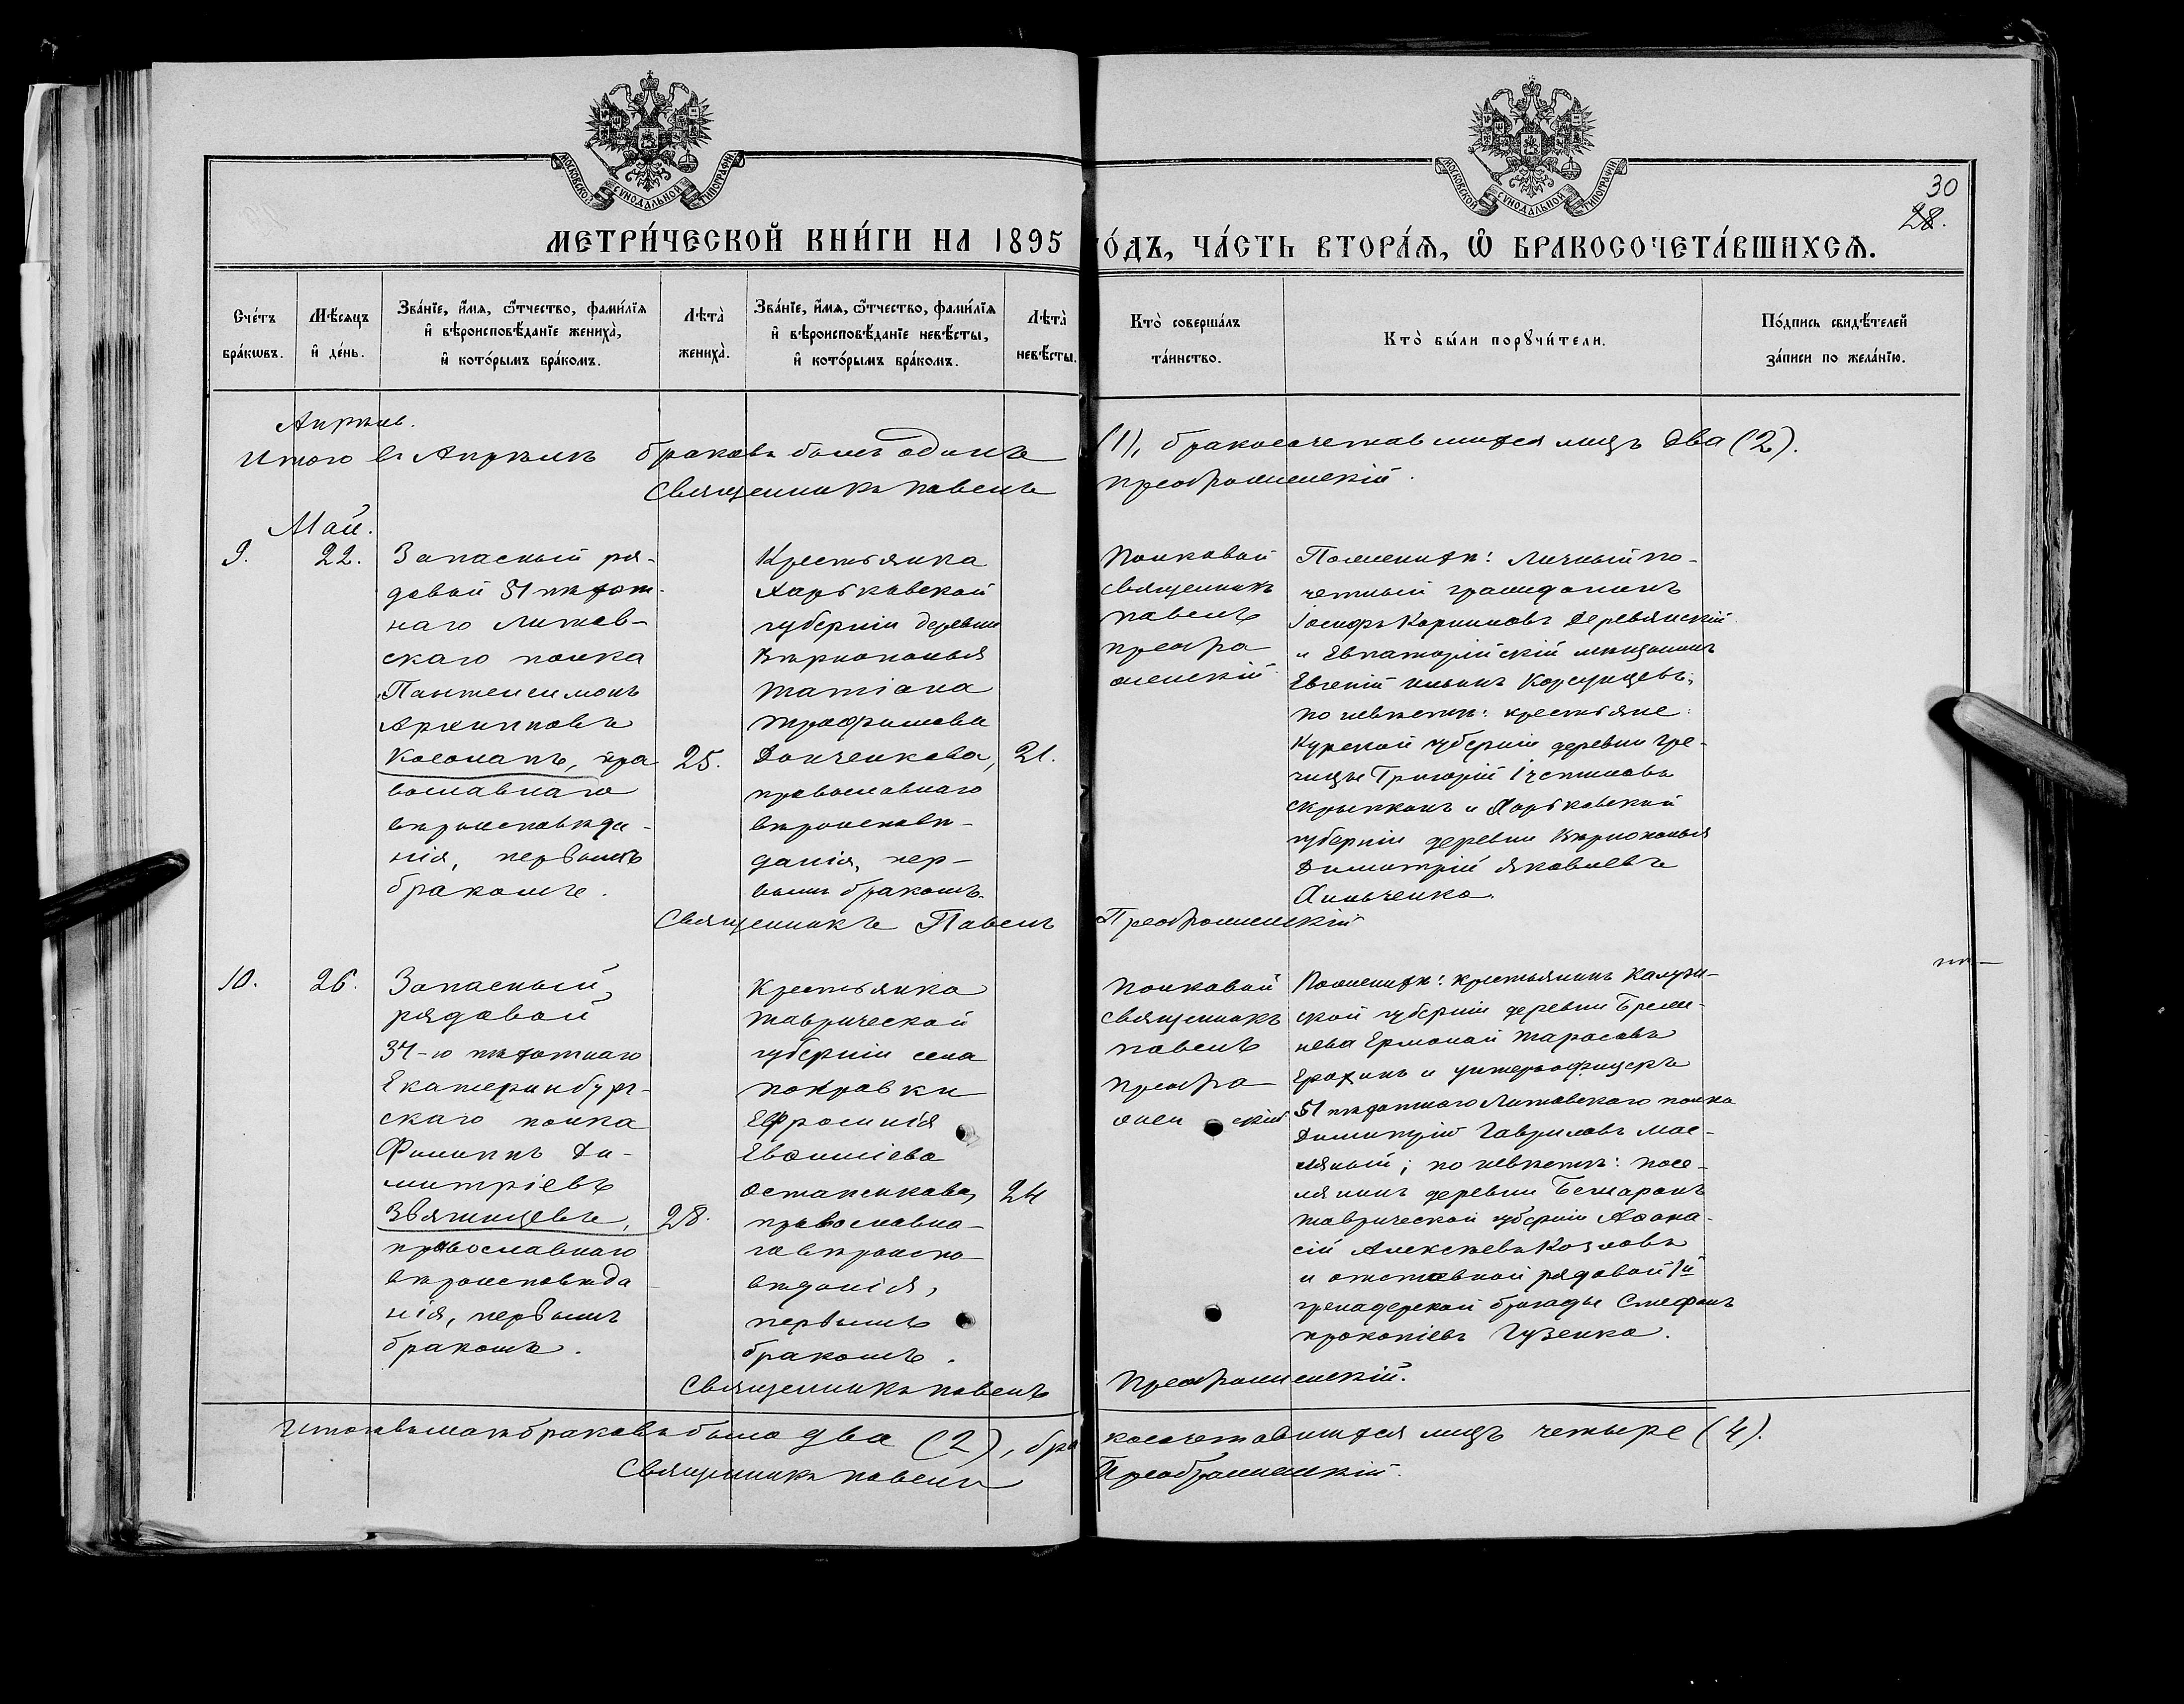 МОСКОВСКОЙ СѴНОДАЛЬНОЙ ТИПОГРАФІИ
МОСКОВСКОЙ СѴНОДАЛЬНОЙ ТИПОГРАФІИ
30
28.
МЕТРИ́ЧЕСКОЙ КНИ́ГИ НА 1895
О́ДЪ, ЧА́СТЬ ВТОРА́Ѧ, Ѡ҆ БРАКОСОЧЕТА́ВШИХСѦ.
Сче́тъ бра́кѡвъ.
Мѣ́сяцъ и҆ де́нь.
Зва́нїе, и҆́мѧ, ѻ҆́тчество, фами́лїѧ
и҆ вѣроисповѣ́данїе жениха̀,
и҆ кото́рымъ бра́комъ.
Лѣта̀ жениха̀.
Зва́нїе, и҆́мѧ, ѻ҆́тчество, фами́лїѧ
и҆ вѣроисповѣ́данїе невѣ́сты,
и҆ кото́рымъ бра́комъ.
Лѣта̀ невѣ́сты.
Кто̀ соверша́лъ та́инство.
Кто̀ бы́ли порꙋчи́тели.
По́дпись свидѣ́телей за́писи по жела́нїю.
Апрѣль.
Итого въ Апрѣлѣ браковъ былъ одинъ (1), бракосочетавшихся лицъ два (2).
Священникъ Павелъ Преображенскій.
Май.
9.
22.
Запасный ря-
довой 51 пѣхот-
наго Литов-
скаго полка
Пантелеимонъ
Архипповъ
Косолапъ, пра
вославнаго
вѣроисповѣда-
нія, первымъ
бракомъ.
25.
Крестьянка
Харьковской
губерніи деревни
Вѣрнополья
Татіана
Трофимова
Донченкова,
православнаго
вѣроисповѣ-
данія, пер-
вымъ бракомъ.
21.
Полковой
священникъ
Павелъ
Преобра
женскій
По женихѣ: личный по-
четный гражданинъ
Іосифъ Корниловъ Деревянскій
и Евпаторійскій мѣщанинъ
Евгеній Ильинъ
по невѣстѣ: крестьяне:
Курской губерніи деревни Гре-
чицы Григорій
Скрыпкинъ и Харьковской
губерніи деревни Вѣрнополья
Димитрій Яковлевъ
Хильченко.
Священникъ Павелъ Преображенскій
10.
26.
Запасный
рядовой
37-го пѣхотнаго
Екатеринбург-
скаго полка
Филиппъ Ди-
митріевъ
Звягинцевъ,
православнаго
вѣроисповѣда
нія, первымъ
бракомъ.
28.
Крестьянка
Таврической
губерніи села
Покровки
Ефросинія
Евѳиміева
Остапенкова,
православна-
го вѣроиспо-
вѣданія,
первымъ
бракомъ.
24
Полковой
священникъ
Павелъ
Преобра
женскій
По женихѣ: крестьянинъ Калуж-
ской губерніи деревни
Ермолай Тарасовъ
Ерохинъ и унтеръ-офицеръ
51 пѣхотнаго Литовскаго полка
Димитрій Гавриловъ Мас-
ляный; по невѣстѣ: посе-
лянинъ деревни Бешаранъ
Таврической губерніи Аѳана-
сій Алексѣевъ Козловъ
и отставной рядовой 1й
гренадерской бригады Стефанъ
Прокопіевъ Гузенко.
Священникъ Павелъ Преображенскій.
Итого въ маѣ браковъ было два (2), бра косочетавшихся лицъ четыре (4).
Священникъ Павелъ Преображенскій.